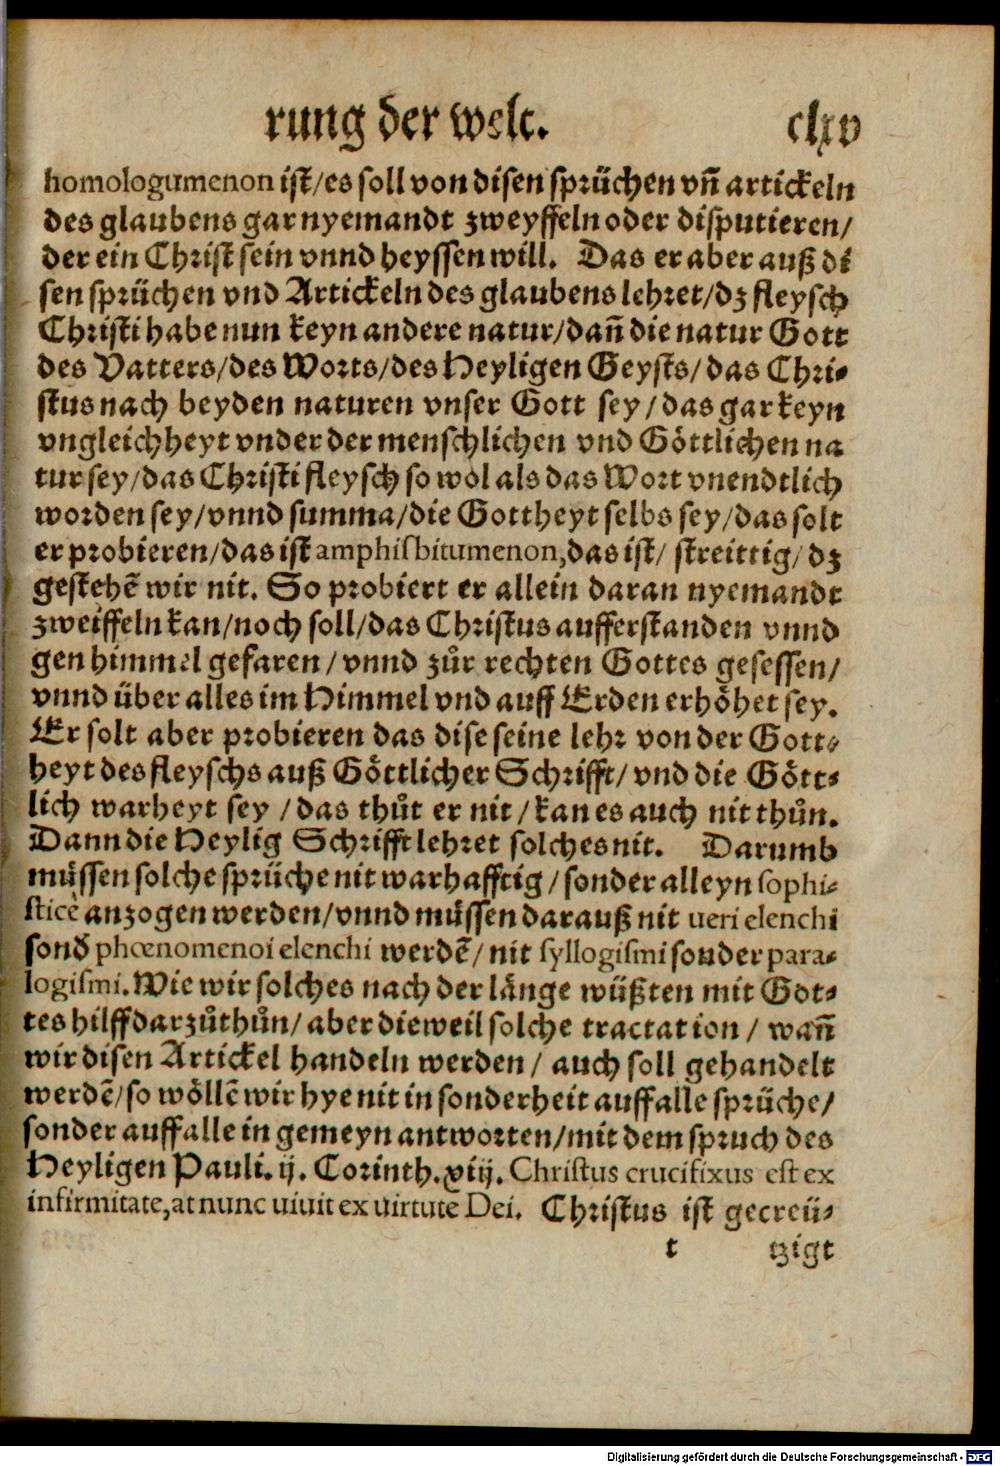 rung der welt. clxv
homologumenon ist/es soll von disen sprüchen vñ artickeln
des glaubens gar nyemandt zweyffeln oder disputieren/
der ein Christ sein vnnd heyssen will. Das er aber auß di
sen sprüchen vnd Artickeln des glaubens lehret/dz fleysch
Christi habe nun keyn andere natur/dañ die natur Gott
des Vatters/des Worts/des Heyligen Geysts/das Chri-
stus nach beyden naturen vnser Gott sey/das gar keyn
vngleichheyt vnder der menschlichen vnd Göttlichen na
tur sey/das Christi fleysch so wol als das Wort vnendtlich
worden sey/vnnd summa/die Gottheyt selbs sey/das solt
er probieren/das ist amphisbitumenon,das ist/ streittig/ dz
gestehẽ wir nit. So probiert er allein daran nyemandt
zweiffeln kan/noch soll/das Christus aufferstanden vnnd
gen himmel gefaren/vnnd zůr rechten Gottes gesessen/
vnnd über alles im Himmel vnd auff Erden erhöhet sey.
Er solt aber probieren das dise seine lehr von der Gott-
heyt des fleyschs auß Göttlicher Schrifft/vnd die Gött-
lich warheyt sey /das thůt er nit/kan es auch nit thůn.
Dann die Heylig Schrifft lehret solches nit. Darumb
müssen solche sprüche nit warhafftig/sonder alleyn sophi-
sticè anzogen werden/vnnd müssen darauß nit ueri elenchi
sonď phœnomenoi elenchi werdẽ/ nit syllogismi sonder para-
logismi. Wie wir solches nach der länge wüßten mit Got-
tes hilff darzůthůn/ aber dieweil solche tractation / wañ
wir disen Artickel handeln werden/ auch soll gehandelt
werdẽ/so wöllẽ wir hye nit in sonderheit auff alle sprüche/
sonder auff alle in gemeyn antworten/mit dem spruch des
Heyligen Pauli. ij. Corinth. xiij. Christus crucifixus est ex
infirmitate,at nunc uiuit ex uirtute Dei. Christus ist gecreü-
t tzigt
Digitalisierung gefördert durch die Deutsche Forschungsgemeinschaft - DFG